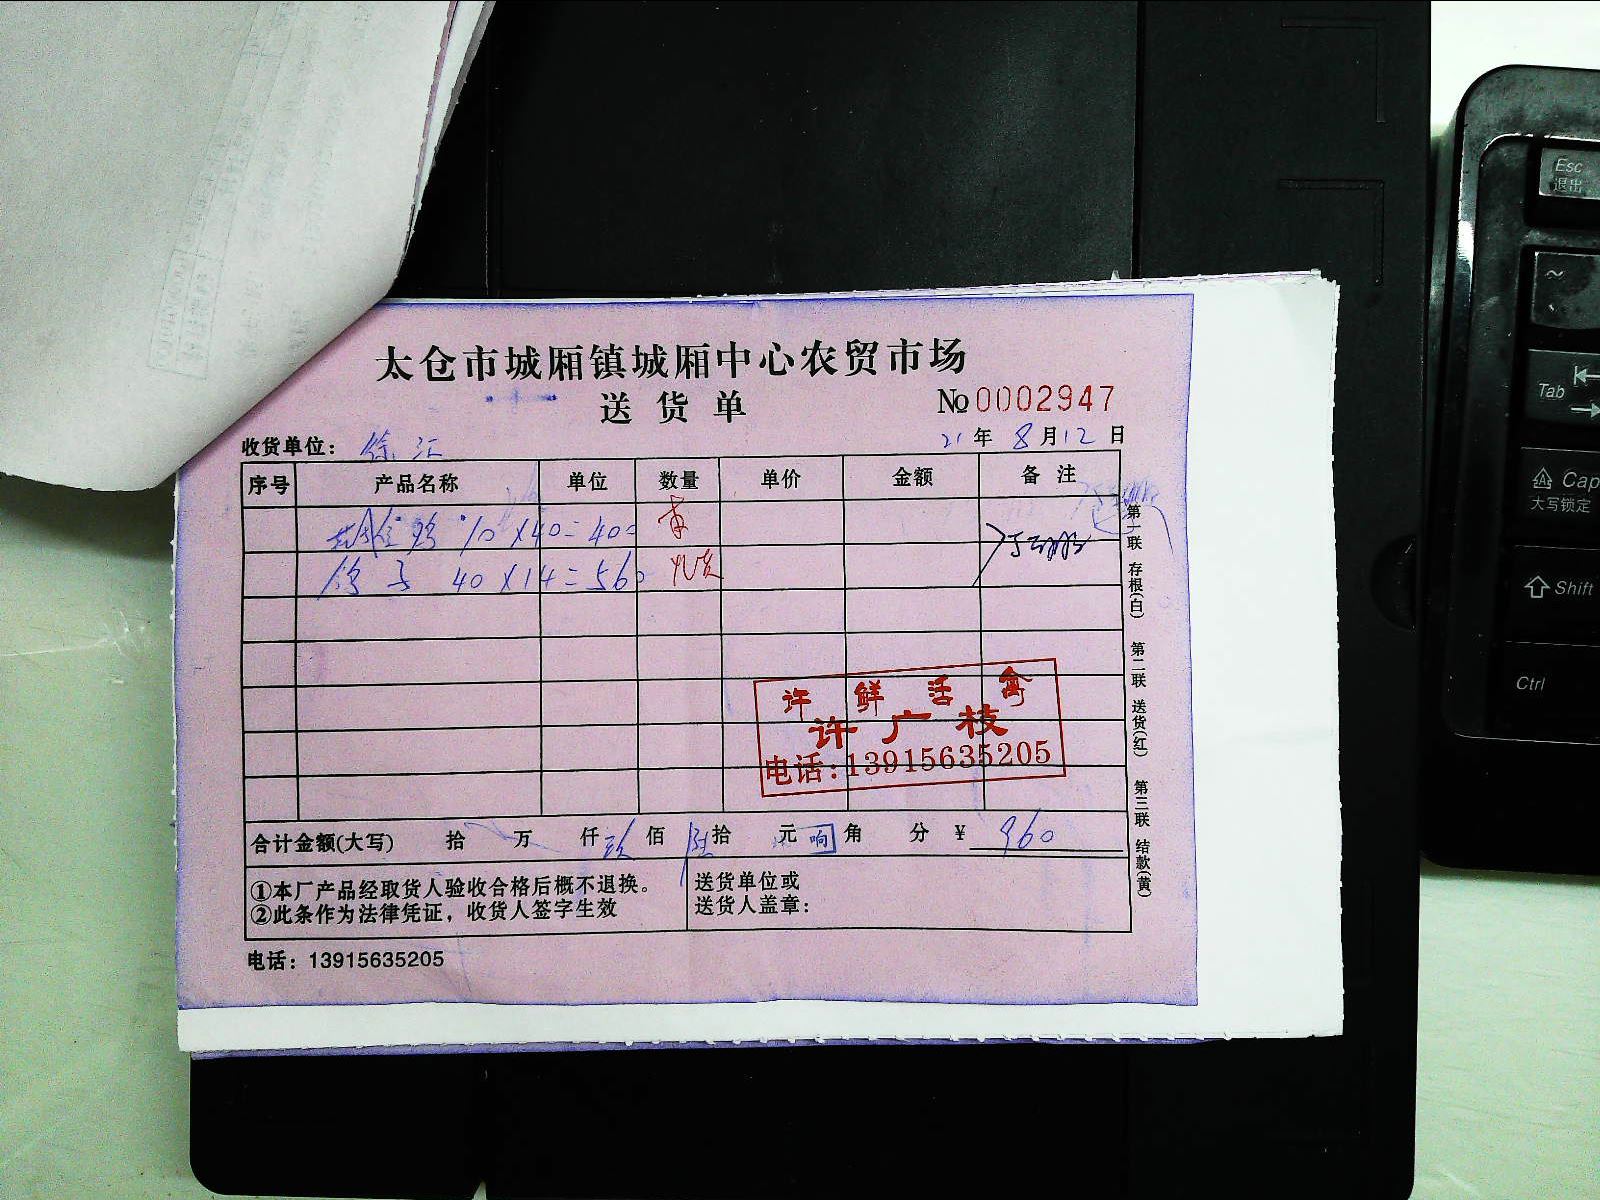 太仓市城厢镇城厢中心农贸市场
送货单
№0002947
收货单位: 徐汇
21年8月12日
序号 产品名称 单位 数量 单价 金额 备注
10×40=400
40×14=560
许 鲜 活 禽
许广枝
电话:13915635205
合计金额(大写) 拾 万 仟 玖 佰 陆 拾 元 角 分 ¥ 960
①本厂产品经取货人验收合格后概不退换。
②此条作为法律凭证，收货人签字生效
送货单位或
送货人盖章:
电话: 13915635205
第一联 存根(白) 第二联 送货(红) 第三联 结款(黄)
Esc
退出
~
Tab
Cap
大写锁定
Shift
Ctrl